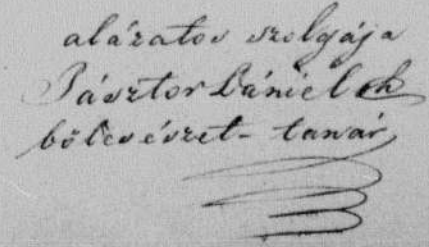 alázatos szolgája
Pásztor Dániel mk
bölcsészet-tanár